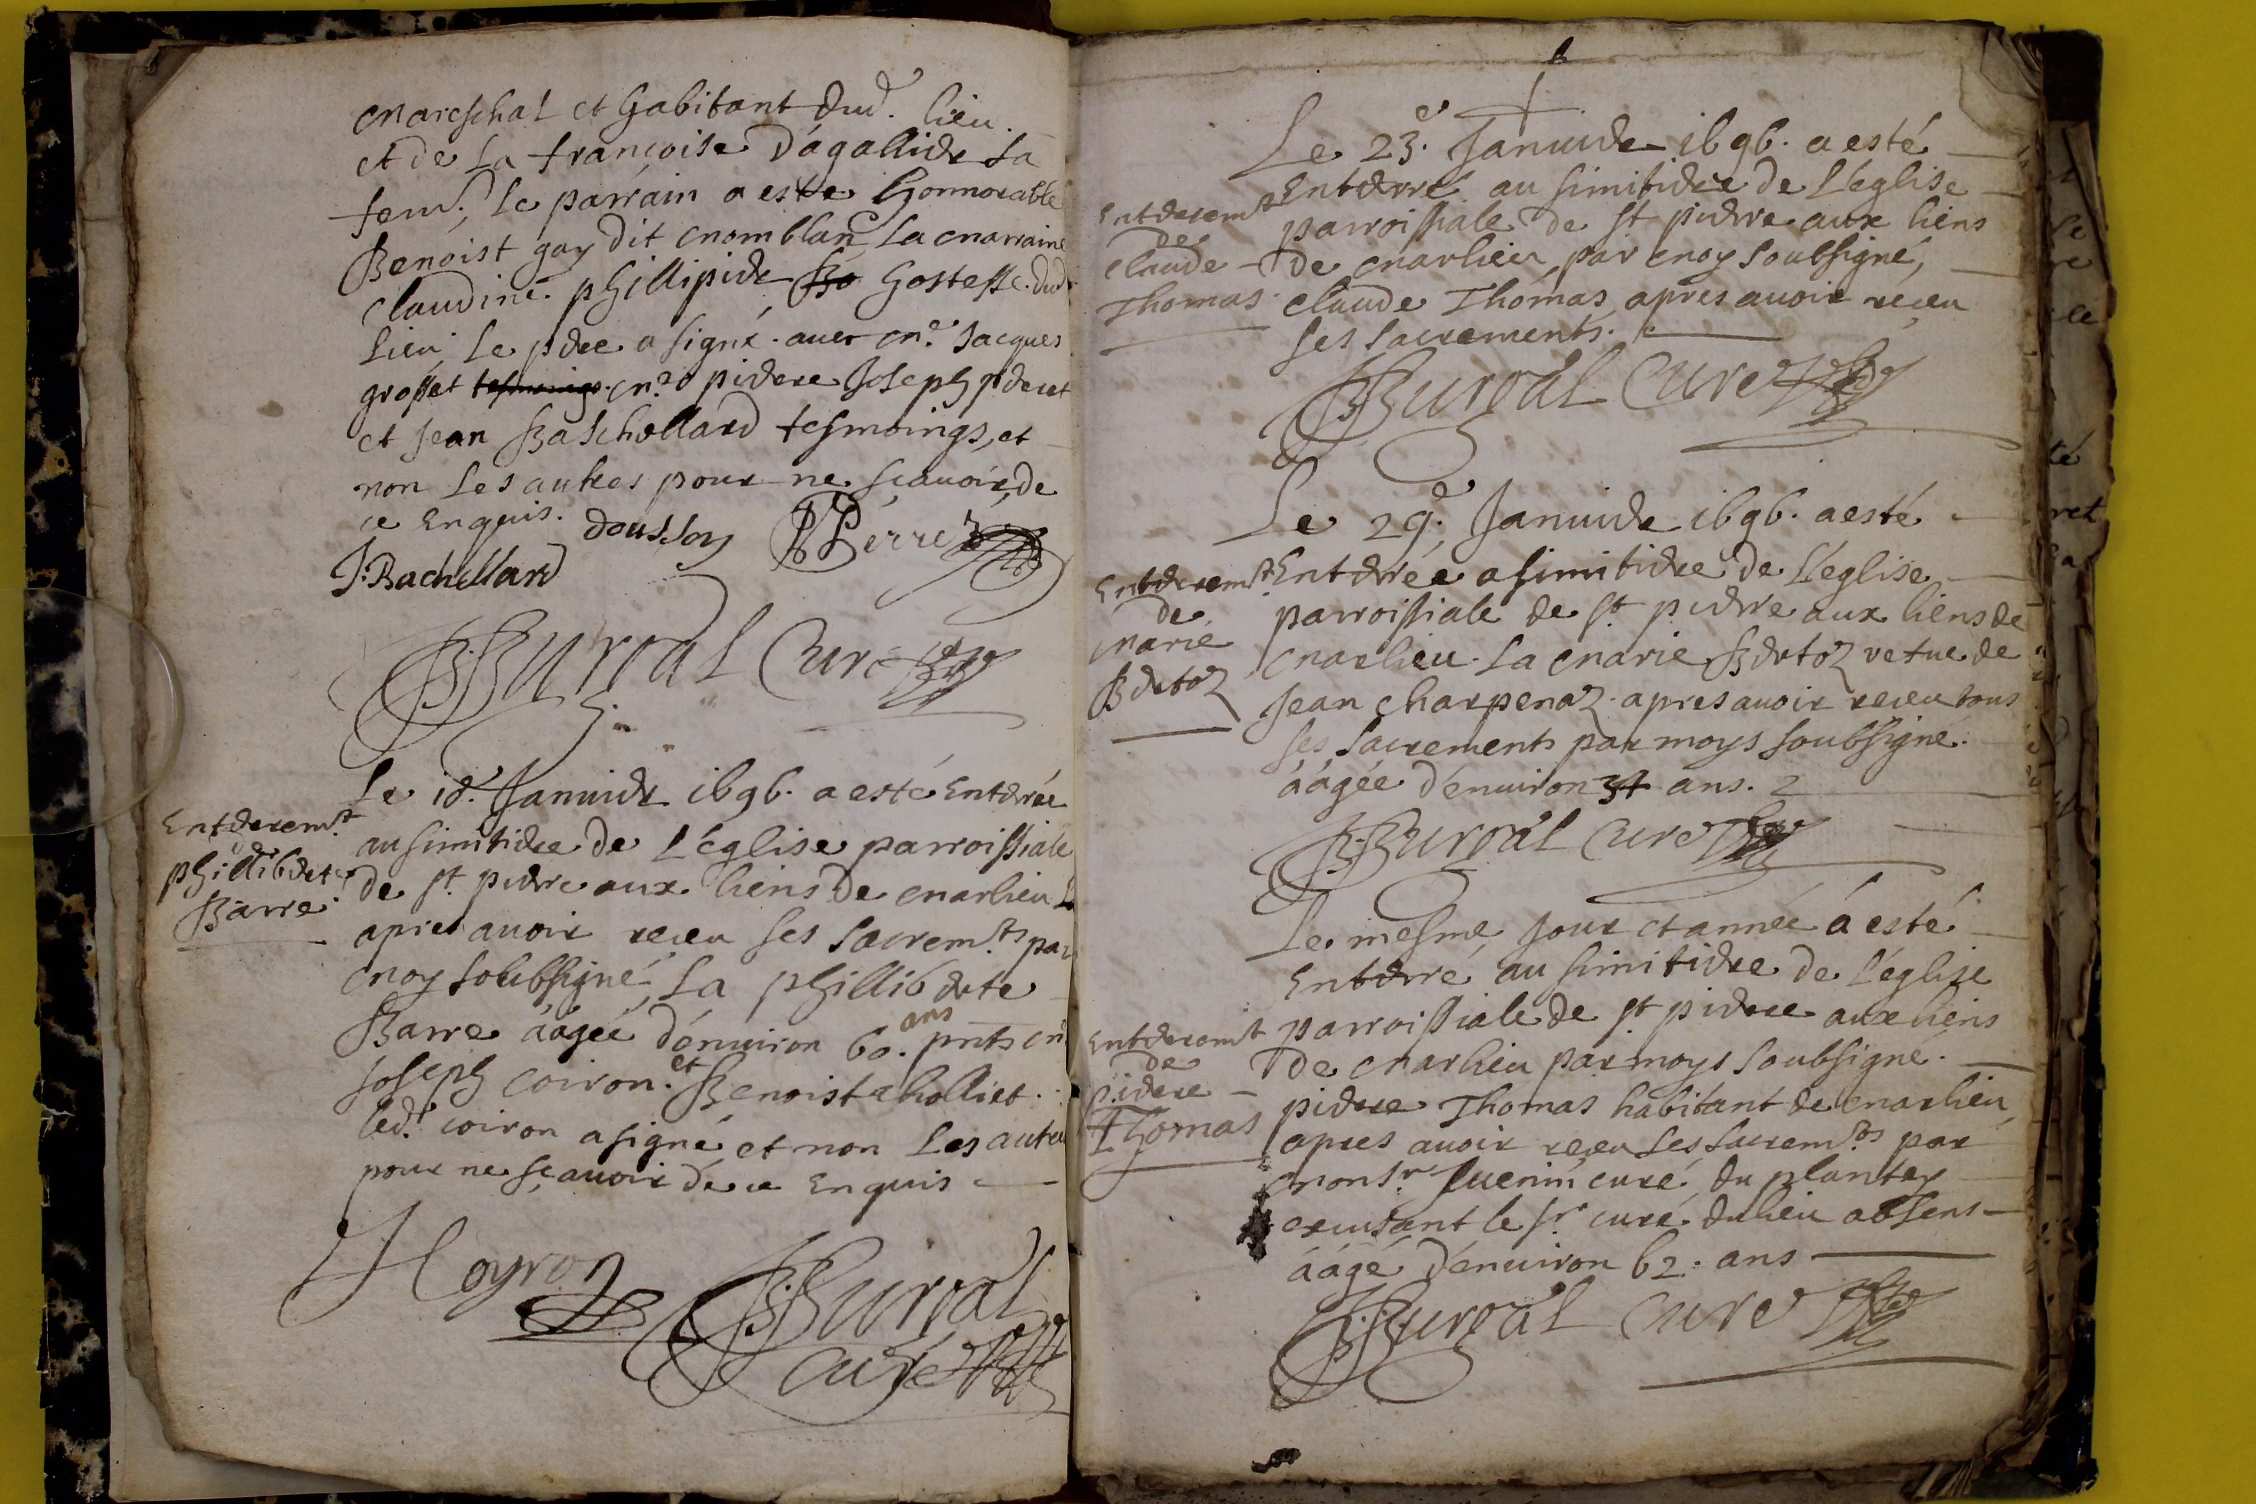 mareschal et habitant dud. lieu.
et de la françoise dágallier sa
fem. le parrain a este honnorable
Benoist gay dit momblanc la marraine
claudine phillipier hostesse. dud
lieu le pere a signé. avec me. Jacques
grosset me. pierre Joseph perret
et Jean Baschellard tesmoings, et
non les autres pour ne sçavoir, de
ce enquis.
doussoy PPerret
J: Bachellard
B: Burval Curé
Le 18. Januier 1696. a esté enterrée
au simitiere de l'église parroissiale
de st. pierre aux liens de marlieu
apres auoir receu ses sacremts. par
moy soubsigné, la phillib erte
Barre áagée d'enuiron 60. ans pnts
Joseph coiron. et Benoist cholliet.
led.t coiron a signé et non les autres
pour ne sçauoir de ce enquis
Enterremt.
phillib erte
Barre.
Coyron
B: Burval
curé
6
Le 23.e Januier 1696. a esté
Enterré au simitiere de l'église
parroissiale de st pierre aux liens
de marlieu par moy soubsigné,
claude Thómas apres auoir réceu
ses sacrements.
Enterremt
de
claude
Thomas
B: Burval Curé
Le 29.e Januier 1696. a esté
Enterrée a simitiere de l'église
parroissiale de st pierre aux liens de
marlieu. la marie Bertoz vefue de
Jean charpenaz. apres auoir receu tous
ses sacrements par moys soubsigné.
áagée d'enuiron 34 ans.
Enterremt.
de
marie
Bertoz
B: Burval Curé
Le mesme jour et année á esté
Enterré au simitiere de l'église
parroissiale de st pierre aux liens
de marlieu par moys soubsigné.
pierre Thomas habitant de marlieu,
apres auoir receu les sacremts par
monsr. curé du plantey
excusant le sr curé. du lieu absens
áágé d'enuiron 62. ans
Enterremt
de
pierre
Thomas
B: Burval Curé